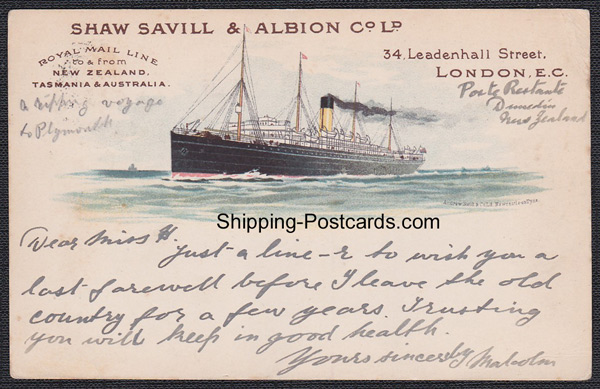 SHAW SAVILL & ALBION Co LD
ROYAL MAIL LINE
to & from
NEW ZEALAND,
TASMANIA & AUSTRALIA.
34, Leadenhall Street.
LONDON, E.C.
a ripping voyage
to Plymouth.
Poste Restante
Dunedin
New Zealand
Shipping-Postcards.com
Dear Miss H.
Just a line - to wish you a
last farewell before I leave the old
country for a few years. Trusting
you will keep in good health.
Yours sincerely Malcolm